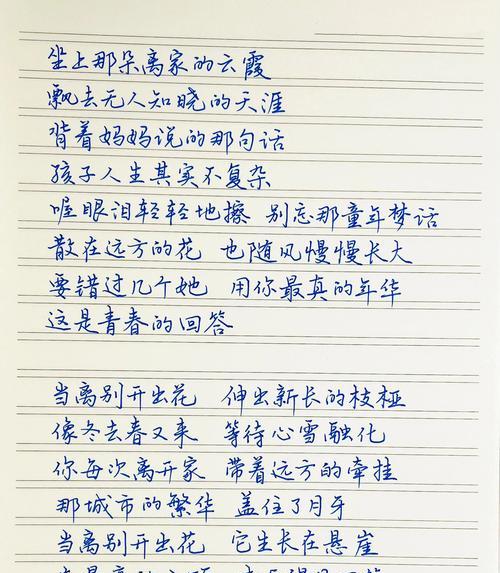 坐上那朵离家的云霞
飘去无人知晓的天涯
背着妈妈说的那句话
孩子人生其实不复杂
喔眼泪轻轻地擦 别忘那童年梦话
散在远方的花 也随风慢慢长大
要错过几个她 用你最真的年华
这是青春的回答
当离别开出花 伸出新长的枝桠
像冬去春又来 等待心雪融化
你每次离开家 带着远方的牵挂
那城市的繁华 盖住了月牙
当离别开出花 它生长在悬崖